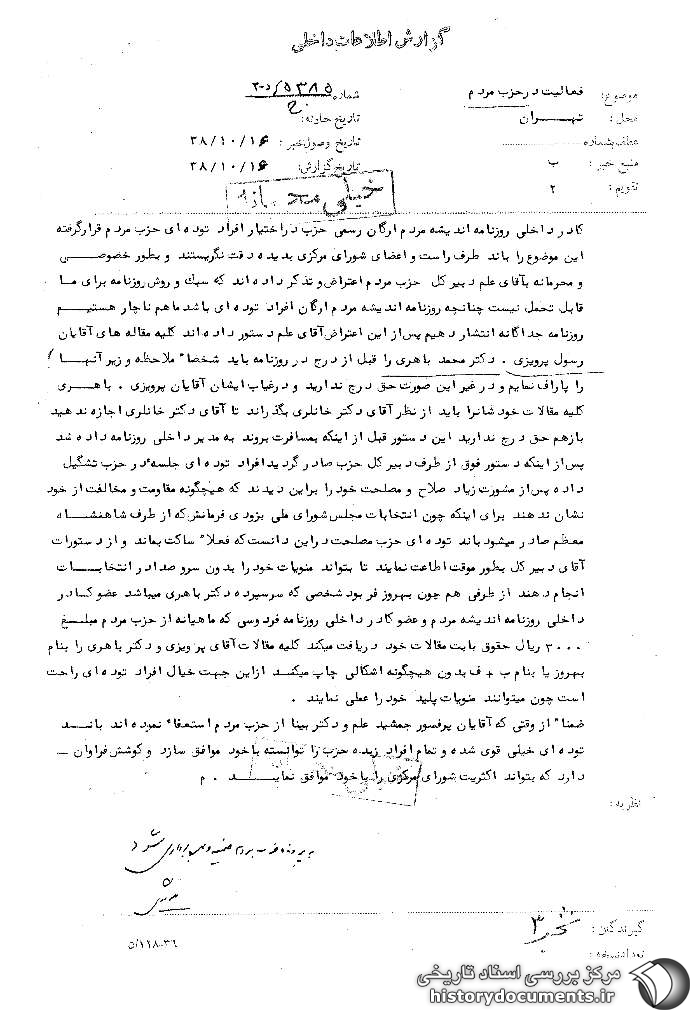 گزارش اطلاعات داخلی
موضوع: فعالیت در حزب مردم
شماره ۵۳۸۵/س‌۲۰
محل: تهران
تاریخ حادثه:
عطف بشماره
تاریخ وصول خبر: ۳۸/۱۰/۱۶
منبع خبر: ب
تاریخ گزارش: ۳۸/۱۰/۱۶
تقویم: ۲
خیلی محرمانه
کادر داخلی روزنامه اندیشه مردم ارگان رسمی حزب در اختیار افراد توده ای حزب مردم قرار گرفته
این موضوع را باند طرف راست و اعضای شورای مرکزی بدیده دقت نگریستند و بطور خصوصی
و محرمانه بآقای علم دبیر کل حزب مردم اعتراض و تذکر داده اند که سبک و روش روزنامه برای ما
قابل تحمل نیست چنانچه روزنامه اندیشه مردم ارگان افراد توده ای باشد ما هم ناچار هستیم
روزنامه جداگانه انتشار دهیم پس از این اعتراض آقای علم دستور داده اند کلیه مقاله های آقایان
رسول پرویزی . دکتر محمد باهری را قبل از درج در روزنامه باید شخصا" ملاحظه و زیر آنها
را پاراف نمایم و در غیر این صورت حق درج ندارید و در غیاب ایشان آقایان پرویزی . باهری
کلیه مقالات خودشانرا باید از نظر آقای دکتر خانلری بگذراند تا آقای دکتر خانلری اجازه ندهید
بازهم حق درج ندارید این دستور قبل از اینکه بمسافرت بروند به مدیر داخلی روزنامه داده شد
پس از اینکه دستور فوق از طرف دبیر کل حزب صادر گردید افراد توده ای جلسهٔ در حزب تشگیل
داده پس از مشورت زیاد صلاح و مصلحت خود را براین دیدند که هیچگونه مقاومت و مخالفت از خود
نشان ندهند برای اینکه چون انتخابات مجلس شورای ملی بزودی فرمانش که از طرف شاهنشاه
معظم صادر میشود باند توده ای حزب مصلحت در این دانست که فعلا" ساکت بماند و از دستورات
آقای دبیر کل بطور موقت اطاعت نمایند تا بتواند منویات خود را بدون سر و صدا در انتخابات
انجام دهند از طرفی هم چون بهروز فربود شخصی که سرسپرده دکتر باهری میباشد عضو کسادر
داخلی روزنامه اندیشه مردم و عضو کادر داخلی روزنامه فردوسی که ماهیانه از حزب مردم مبلغ
۳۰۰۰ ریال حقوق بابت مقالات خود دریافت میکند کلیه مقالات آقای پرویزی و دکتر باهری را بنام
بهروز یا بنام ب + ف بدون هیچگونه اشکالی چاپ میکند از این جهت خیال افراد توده ای راحت
است چون میتوانند منویات پلید خود را عملی نمایند .
ضمنا" از وقتی که آقایان پرفسور جمشید علم و دکتر بینا از حزب مردم استعفاء نموده اند باند
توده ای خیلی قوی شده و تمام افراد زبده حزب را توانسته با خود موافق سازد و کوشش فراوان
دارد که بتواند اکثریت شورای مرکزی را با خود موافق نماید . م
نظریه:
گیرندگان:
تعداد نسخه:
۵/۱۱۸-۳۶
مرکز بررسی اسناد تاریخی
historydocuments.ir